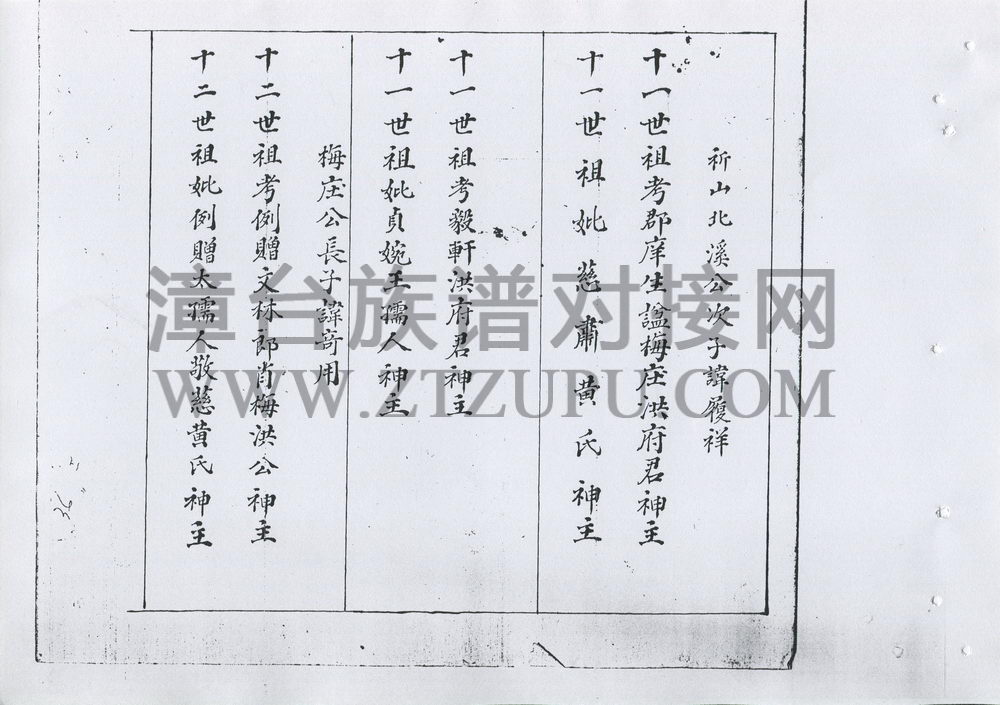 祈山北溪公次子諱履祥
十一世祖考郡庠生謚梅庄洪府君神主
十一世祖妣慈肅黄氏神主
十一世祖考毅軒洪府君神主
十一世祖妣貞婉王孺人神主
梅庄公長子諱奇用
十二世祖考例贈文林郎肖梅洪公神主
十二世祖妣例贈太孺人敬慈黄氏神主
漳台族谱对接网
WWW.ZTZUPU.COM